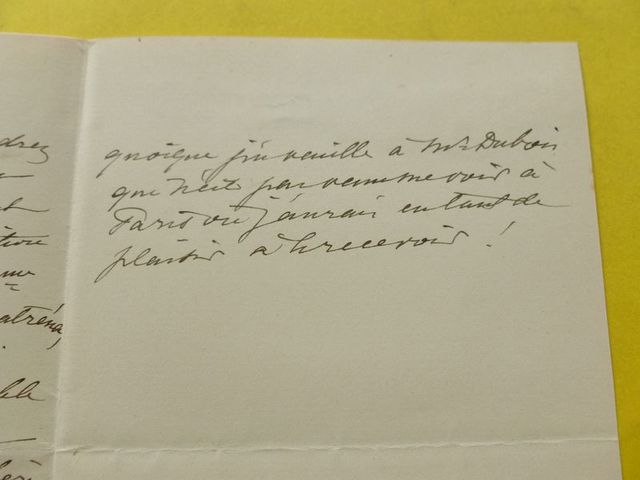 drez
quoique j'en veuille à Mr Dubois
qui n'est pas venu me voir à
Paris où j'aurais eu tant de
plaisir à le recevoir !
me